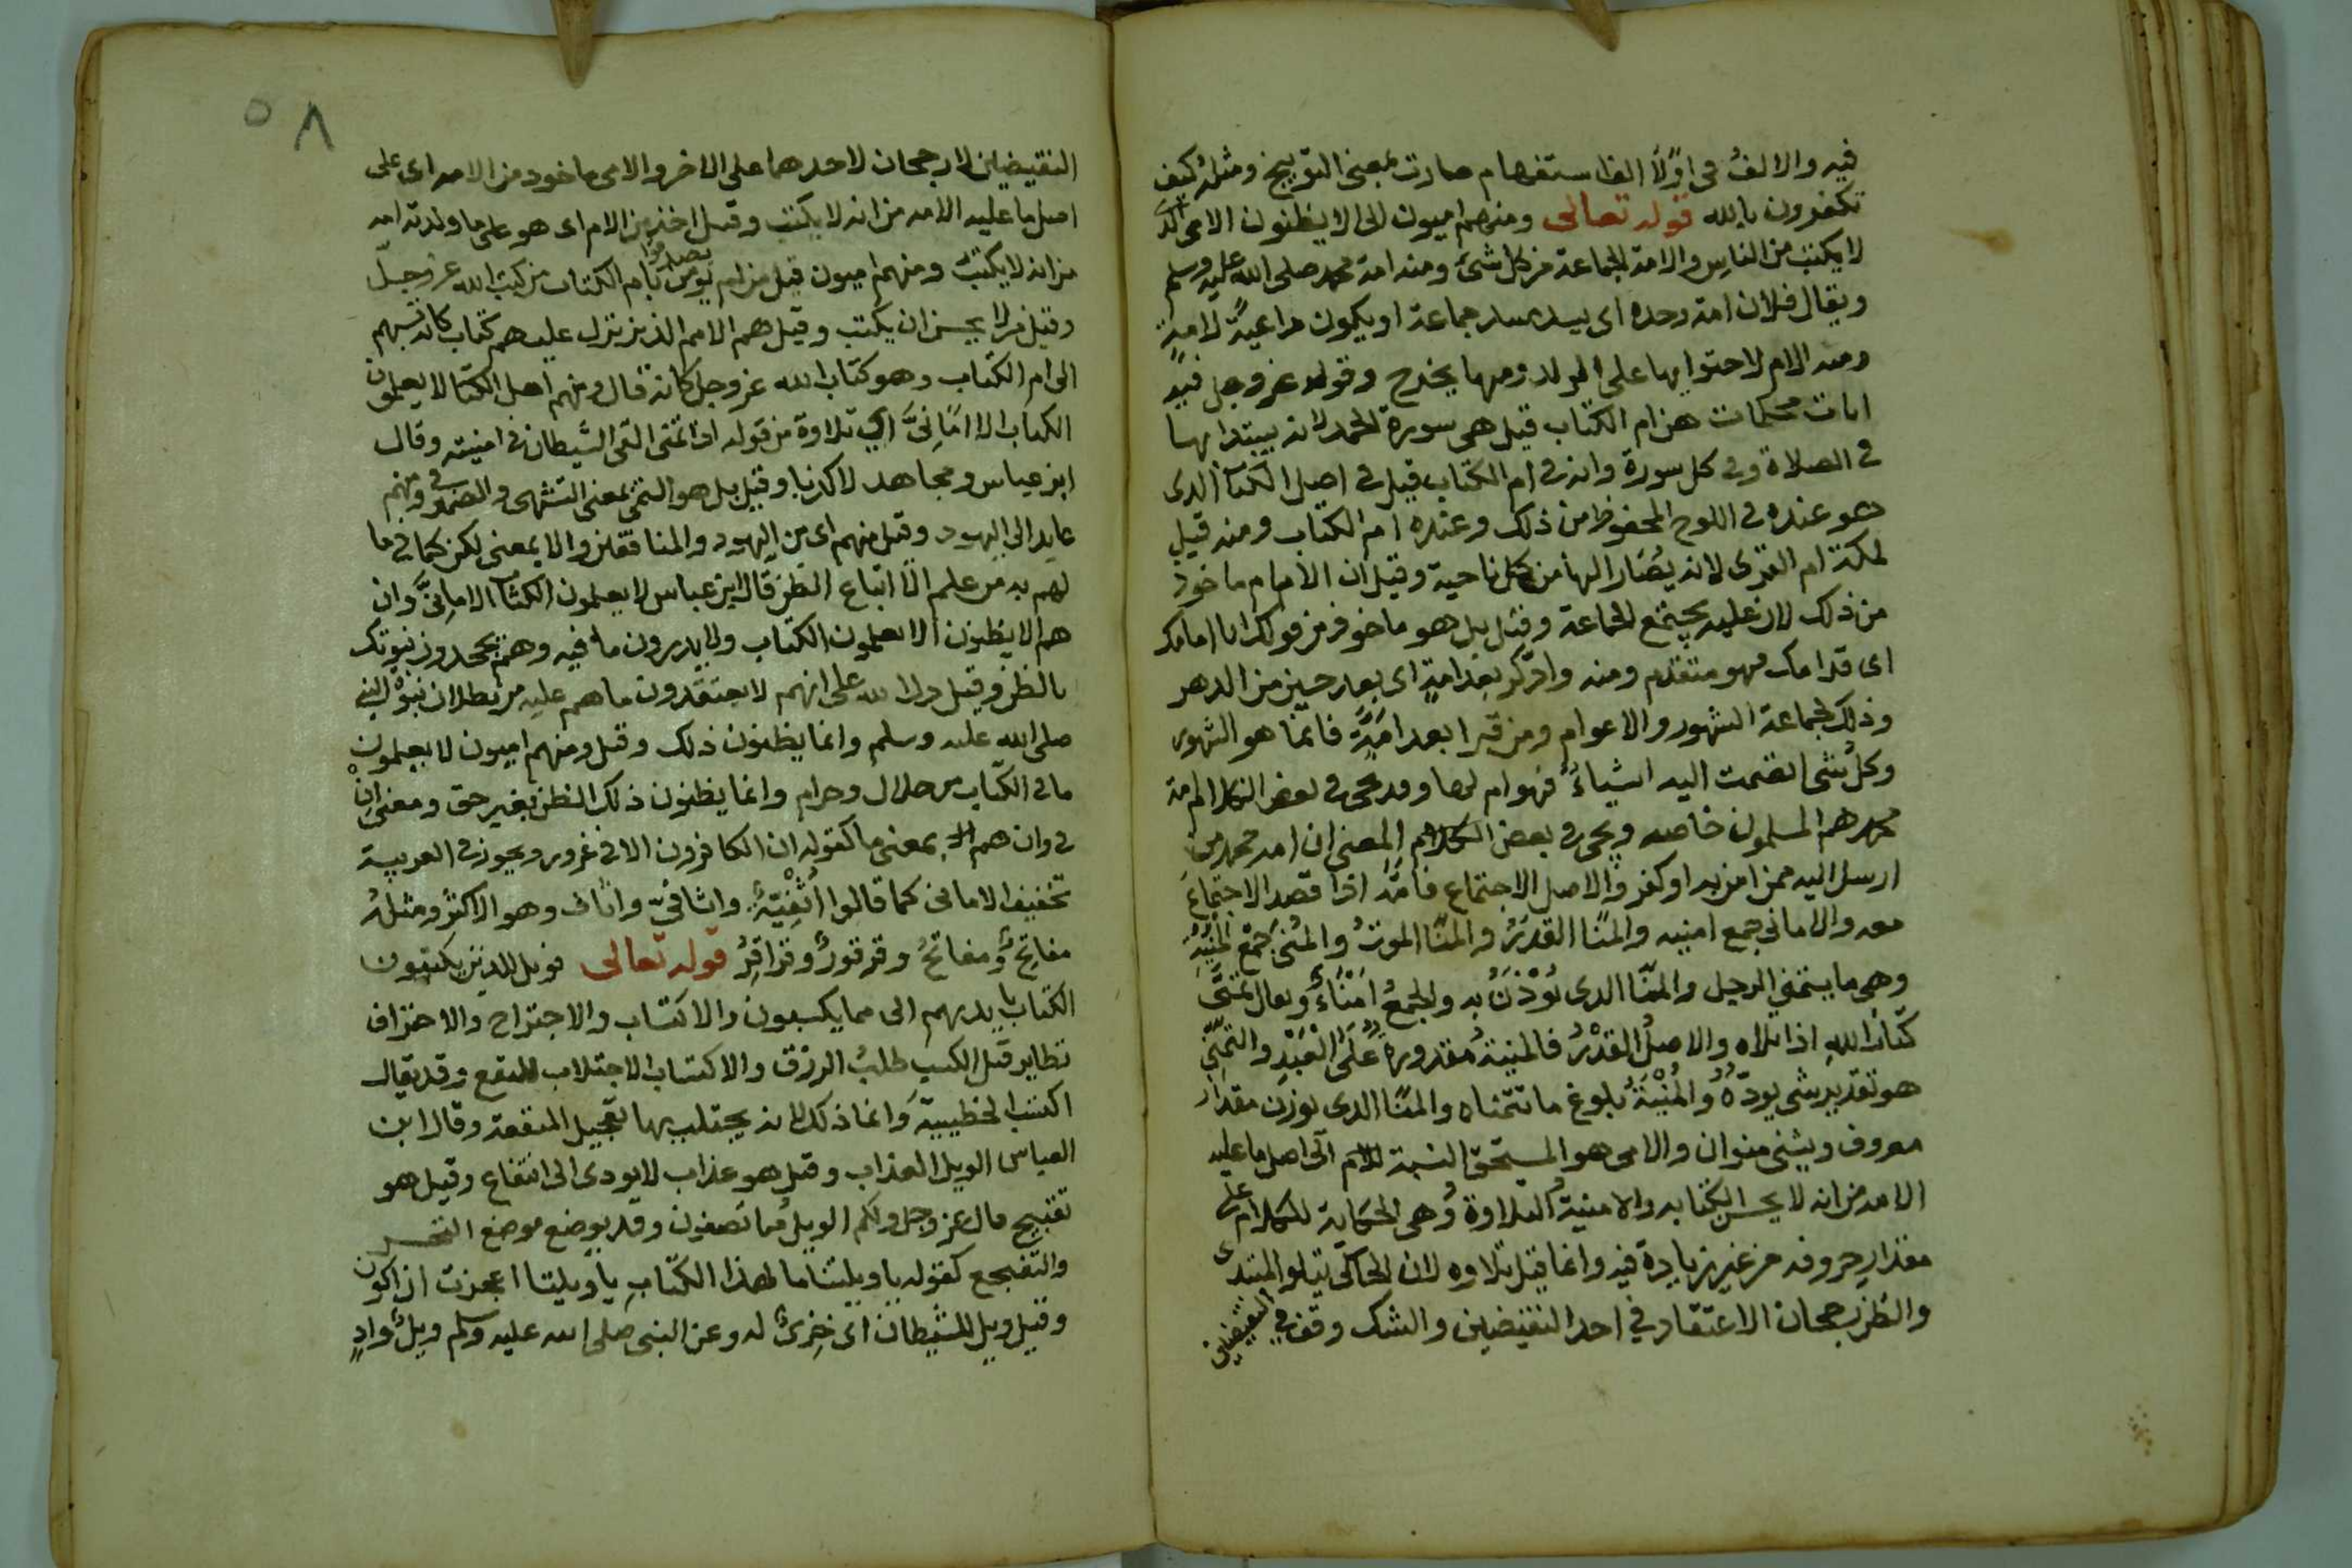 فيه والالف في اولا الف استفهام صارت بمعنى التوبيخ ومثله كيف
تكفرون بالله قوله تعالى ومنهم اميون الى الا يظنون الامى الذى
لا يكتب من الناس والامة الجماعة من كل شئ ومنه امة محمد صلى الله عليه وسلم
ويقال فلان امة وحده اى يسد مسد جماعة او يكون مراعية لامة
ومنه الام لاحتوايها على المولد ومنها يخرج وقوله عز وجل فيه
ايات محكمات هن ام الكتاب قيل هى سورة الحمد لانه يبتدا بها
في الصلاة وفى كل سورة وانه في ام الكتاب قيل في اصل الكتاب الذى
هو عنده في اللوح المحفوظ من ذلك وعنده ام الكتاب ومنه قيل
لمكة ام القرى لانه يصار اليها من كل ناحية وقيل ان الامام ماخوذ
من ذلك لان عليه يجتمع الجماعة وقيل بل هو ماخوذ من قولك انا امامك
اى قدامك فهو متقدم ومنه وادكر بعد امة اى بعد حين من الدهر
وذلك لجماعة الشهور والاعوام ومن قرا بعد امة فانما هو الشهوه
وكل شى انضمت اليه اشياء فهو ام لها وقد يجى في بعض الكلام امة
محمد هم المسلمون خاصه ويجى في بعض الكلام المعنى ان امة محمد من
ارسل اليه ممن امن به او كفر والاصل الاجتماع فامه اذا قصد الاجتماع
معه والامانى جمع امنيه والمنا القدر والمنا الموت والمنى جمع المنية
وهى ما يتمنى الرجل والمنا الذى يوزن به والجمع امناء ويقال تمنى
كتاب الله اذا تلاه والاصل القدر فالمنية مقدورة على العبد والتمنى
هو تقدير شى يوده والمنية بلوغ ما تتمناه والمنا الذى يوزن مقدار
معروف ويثنى منوان والامى هو المستحق النسبة للام الى اصل ما عليه
الامه من انه لا يحسن الكتابه والامنية التلاوة وهى الحكاية للكلام على
مقدار حروفه من غير زيادة فيه وانما قيل تلاوه لان الحاكى يتلو المبتدى
والظن رجحان الاعتقاد في احد النقيضين والشك وقف في النقيضين
٥٨
النقيضين لا رجحان لاحدهما على الاخر والامى ماخوذ من الامه اى على
اصل ما عليه الامه من انه لا يكتب وقيل اخذ من الام اى هو على ما ولدته امه
من انه لا يكتب ومنهم اميون قيل من لم يومن بام الكتاب من كتب الله عز وجل
وقيل من لا يحسن ان يكتب وقيل هم الامم الذين نزل عليهم كتاب كانه نسبهم
الى ام الكتاب وهو كتاب الله عز وجل كانه قال ومنهم اهل الكتاب لا يعلمون
الكتاب الا امانى اى تلاوة من قوله اذا تمنى القى الشيطان في امنيته وقال
ابن عباس ومجاهد لا كذبا وقيل بل هو التمنى بمعنى التشهى والضمير في ومنهم
عايد الى اليهود وقيل منهم اى من اليهود والمنافقين والا بمعنى لكن كما في ما
لهم به من علم الا اتباع الظن قال ابن عباس لا يعلمون الكتاب الا امانى وان
هم الا يظنون الا يعلمون الكتاب ولا يدرون ما فيه وهم يجحدون نبوتك
بالظن وقيل دلالة على انهم لا يعتقدون ما هم عليه من بطلان نبوة النبى
صلى الله عليه وسلم وانما يظنون ذلك وقيل ومنهم اميون لا يعلمون
ما في الكتاب من حلال وحرام وانما يظنون ذلك الظن بغير حق ومعنى ان
في وان هم الا بمعنى ما كقوله ان الكافرون الا في غرور ويجوز في العربية
تخفيف الامانى كما قالوا اثفية واثافى واثاف وهو الاكثر ومثله
مفاتيح ومفاتح وقرقور وقراقر قوله تعالى فويل للذين يكتبون
الكتاب بايديهم الى مما يكسبون والاكتساب والاجتراح والاحتراف
نظاير قيل الكسب طلب الرزق والاكتساب الاجتلاب للنفع وقد يقال
اكتسب الخطيية وانما ذلك لانه يجتلب بها تعجيل المنفعة وقال ابن
العباس الويل العذاب وقيل هو عذاب لا يودى الى انتفاع وقيل هو
تقبيح قال عز وجل ولكم الويل مما تصفون وقد يوضع موضع التحسر
والتفجع كقوله يا ويلتنا ما لهذا الكتاب يا ويلتا اعجزت ان اكون
وقيل ويل للشيطان اى خزى له وعن النبى صلى الله عليه وسلم ويل واد